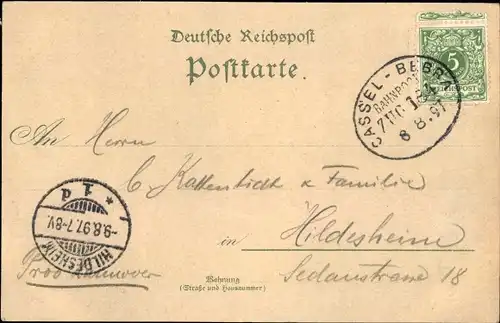 Deutsche Reichspost
Postkarte.
5
REICHSPOST
CASSEL - BEBRA
BAHNPOST
ZUG
8 8. 97
An Herrn
C Kattentidt & Familie
in Hildesheim
Sedanstrasse 18
Prov Hannover
* 1 d
-9.8.97.7-8V.
HILDESHEIM
Wohnung
(Straße und Hausnummer)